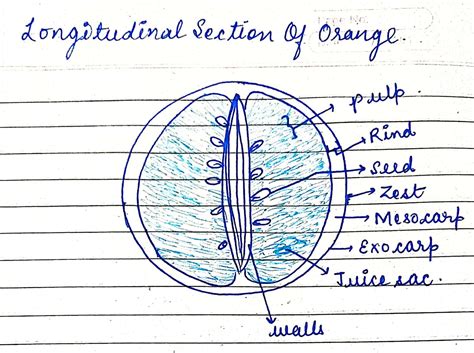 Longitudinal Section Of Orange.
pulp.
Rind
Seed
Zest
Mesocarp
Exocarp
Juice sac.
walls